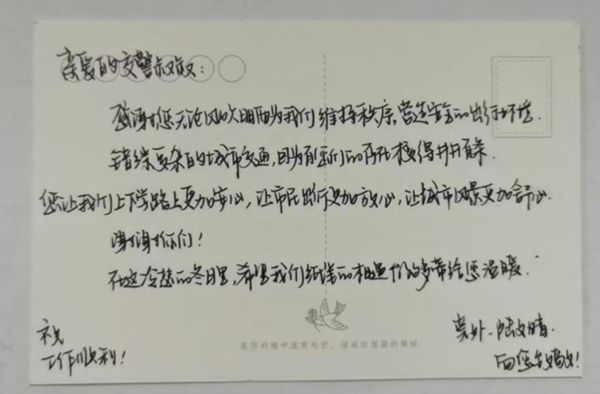 亲爱的交警叔叔:
感谢您无论风吹日晒为我们维持秩序,营造安全的出行环境.
错综复杂的城市交通,因为有您们的存在变得井井有条.
您让我们上下学路上更加安心,让市民出行更加放心,让城市风景更加舒心.
谢谢你们!
在这冷的冬日里,希望我们的能够带给您温暖.
愿你的眼中总有光芒,活成你想要的模样
祝
工作顺利!
外.陆文晴
向您